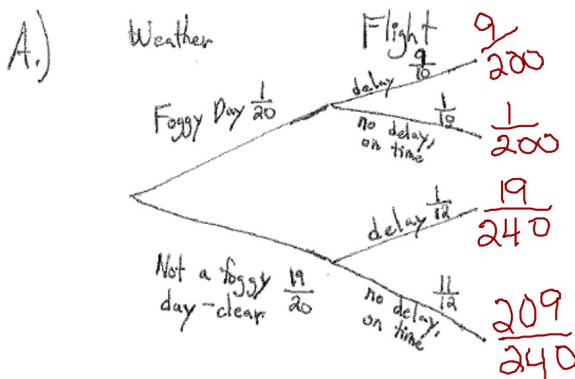 A.)
Weather
Flight
Foggy Day 1/20
delay 9/10
9/200
no delay,
on time
1/10
1/200
Not a foggy
day-clear
19/20
delay 1/12
19/240
no delay,
on time
11/12
209/240